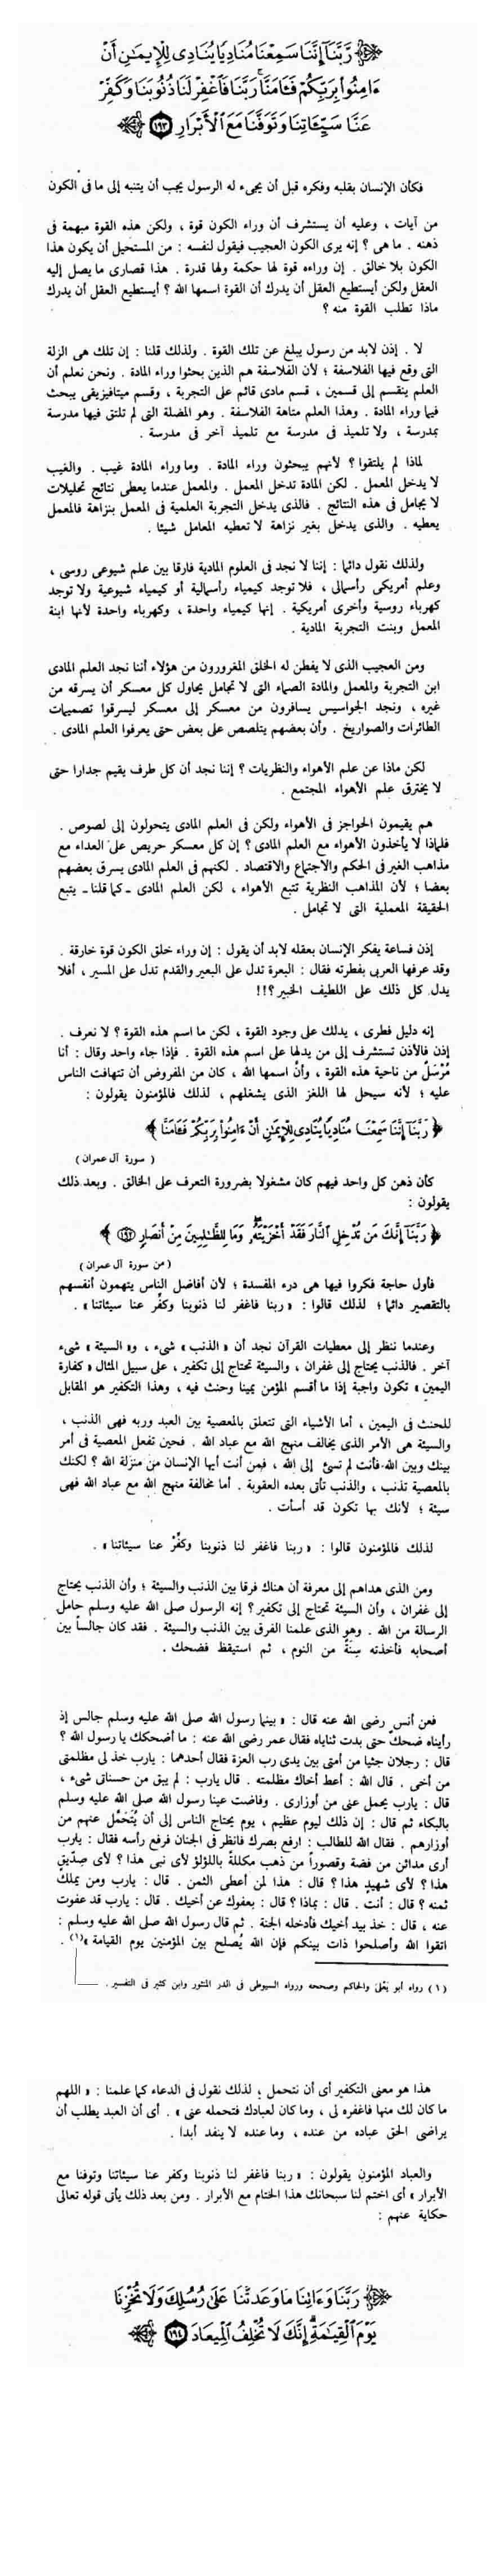 رَّبَّنَآ إِنَّنَا سَمِعْنَا مُنَادِيًا يُنَادِى لِلْإِيمَـٰنِ أَنْ
ءَامِنُوا۟ بِرَبِّكُمْ فَـَٔامَنَّا ۚ رَبَّنَا فَٱغْفِرْ لَنَا ذُنُوبَنَا وَكَفِّرْ
عَنَّا سَيِّـَٔاتِنَا وَتَوَفَّنَا مَعَ ٱلْأَبْرَارِ ١٩٣
فكأن الإنسان بقلبه وفكره قبل أن يجىء له الرسول يجب أن يتنبه إلى ما فى الكون
من آيات ، وعليه أن يستشرف أن وراء الكون قوة ، ولكن هذه القوة مبهمة فى
ذهنه . ما هى ؟ إنه يرى الكون العجيب فيقول لنفسه : من المستحيل أن يكون هذا
الكون بلا خالق . إن وراءه قوة لها حكمة ولها قدرة . هذا قصارى ما يصل إليه
العقل ولكن أيستطيع العقل أن يدرك أن القوة اسمها الله ؟ أيستطيع العقل أن يدرك
ماذا تطلب القوة منه ؟
لا . إذن لابد من رسول يبلغ عن تلك القوة . ولذلك قلنا : إن تلك هى الزلة
التى وقع فيها الفلاسفة ؛ لأن الفلاسفة هم الذين بحثوا وراء المادة . ونحن نعلم أن
العلم ينقسم إلى قسمين ، قسم مادى قائم على التجربة ، وقسم ميتافيزيقى يبحث
فيما وراء المادة . وهذا العلم متاهة الفلاسفة . وهو المضلة التى لم تلتق فيها مدرسة
بمدرسة ، ولا تلميذ فى مدرسة مع تلميذ آخر فى مدرسة .
لماذا لم يلتقوا ؟ لأنهم يبحثون وراء المادة . وما وراء المادة غيب . والغيب
لا يدخل المعمل . لكن المادة تدخل المعمل . والمعمل عندما يعطى نتائج تحليلات
لا يجامل فى هذه النتائج . فالذى يدخل التجربة العلمية فى المعمل بنزاهة فالمعمل
يعطيه . والذى يدخل بغير نزاهة لا تعطيه المعامل شيئا .
ولذلك نقول دائما : إننا لا نجد فى العلوم المادية فارقا بين علم شيوعى روسى ،
وعلم أمريكى رأسمالى ، فلا توجد كيمياء رأسمالية أو كيمياء شيوعية ولا توجد
كهرباء روسية وأخرى أمريكية . إنها كيمياء واحدة ، وكهرباء واحدة لأنها ابنة
المعمل وبنت التجربة المادية .
ومن العجيب الذى لا يفطن له الخلق المغرورون من هؤلاء أننا نجد العلم المادى
ابن التجربة والمعمل والمادة الصماء التى لا تجامل يحاول كل معسكر أن يسرقه من
غيره ، ونجد الجواسيس يسافرون من معسكر إلى معسكر ليسرقوا تصميمات
الطائرات والصواريخ . وأن بعضهم يتلصص على بعض حتى يعرفوا العلم المادى .
لكن ماذا عن علم الأهواء والنظريات ؟ إننا نجد أن كل طرف يقيم جدارا حتى
لا يخترق علم الأهواء المجتمع .
هم يقيمون الحواجز فى الأهواء ولكن فى العلم المادى يتحولون إلى لصوص .
فلماذا لا يأخذون الأهواء مع العلم المادى ؟ إن كل معسكر حريص على العداء مع
مذاهب الغير فى الحكم والاجتماع والاقتصاد . لكنهم فى العلم المادى يسرق بعضهم
بعضا ؛ لأن المذاهب النظرية تتبع الأهواء ، لكن العلم المادى ـ كما قلنا ـ يتبع
الحقيقة المعملية التى لا تجامل .
إذن فساعة يفكر الإنسان بعقله لابد أن يقول : إن وراء خلق الكون قوة خارقة .
وقد عرفها العربى بفطرته فقال : البعرة تدل على البعير والقدم تدل على المسير ، أفلا
يدل كل ذلك على اللطيف الخبير ؟!!
إنه دليل فطرى ، يدلك على وجود القوة ، لكن ما اسم هذه القوة ؟ لا نعرف .
إذن فالأذن تستشرف إلى من يدلها على اسم هذه القوة . فإذا جاء واحد وقال : أنا
مُرْسَلٌ من ناحية هذه القوة ، وأنَّ اسمها الله ، كان من المفروض أن تتهافت الناس
عليه ؛ لأنه سيحل لها اللغز الذى يشغلهم ، لذلك فالمؤمنون يقولون :
﴿ رَبَّنَآ إِنَّنَا سَمِعْنَا مُنَادِيًا يُنَادِى لِلْإِيمَـٰنِ أَنْ ءَامِنُوا۟ بِرَبِّكُمْ فَـَٔامَنَّا ﴾
( سورة آل عمران )
كأن ذهن كل واحد فيهم كان مشغولا بضرورة التعرف على الخالق . وبعد ذلك
يقولون :
﴿ رَبَّنَآ إِنَّكَ مَن تُدْخِلِ ٱلنَّارَ فَقَدْ أَخْزَيْتَهُۥ وَمَا لِلظَّـٰلِمِينَ مِنْ أَنصَارٍ ١٩٢ ﴾
( من سورة آل عمران )
فأول حاجة فكروا فيها هى درء المفسدة ؛ لأن أفاضل الناس يتهمون أنفسهم
بالتقصير دائما ؛ لذلك قالوا : « ربنا فاغفر لنا ذنوبنا وكفِّر عنا سيئاتنا » .
وعندما ننظر إلى معطيات القرآن نجد أن « الذنب » شىء ، و« السيئة » شىء
آخر . فالذنب يحتاج إلى غفران ، والسيئة تحتاج إلى تكفير ، على سبيل المثال « كفارة
اليمين » تكون واجبة إذا ما أقسم المؤمن يمينا وحنث فيه ، وهذا التكفير هو المقابل
للحنث فى اليمين ، أما الأشياء التى تتعلق بالمعصية بين العبد وربه فهى الذنب ،
والسيئة هى الأمر الذى يخالف منهج الله مع عباد الله . فحين تفعل المعصية فى أمر
بينك وبين الله فأنت لم تسئ إلى الله ، فمن أنت أيها الإنسان من منزلة الله ؟ لكنك
بالمعصية تذنب ، والذنب تأتى بعده العقوبة . أما مخالفة منهج الله مع عباد الله فهى
سيئة ؛ لأنك بها تكون قد أسأت .
لذلك فالمؤمنون قالوا : « ربنا فاغفر لنا ذنوبنا وكفِّرْ عنا سيئاتنا » .
ومن الذى هداهم إلى معرفة أن هناك فرقا بين الذنب والسيئة ؛ وأن الذنب يحتاج
إلى غفران ، وأن السيئة تحتاج إلى تكفير ؟ إنه الرسول صلى الله عليه وسلم حامل
الرسالة من الله . وهو الذى علمنا الفرق بين الذنب والسيئة . فقد كان جالساً بين
أصحابه فأخذته سِنَةٌ من النوم ، ثم استيقظ فضحك .
فعن أنس رضى الله عنه قال : « بينما رسول الله صلى الله عليه وسلم جالس إذ
رأيناه ضحك حتى بدت ثناياه فقال عمر رضى الله عنه : ما أضحكك يا رسول الله ؟
قال : رجلان جثيا من أمتى بين يدى رب العزة فقال أحدهما : يارب خذ لى مظلمتى
من أخى . قال الله : أعط أخاك مظلمته . قال يارب : لم يبق من حسناتى شىء ،
قال : يارب يحمل عنى من أوزارى . وفاضت عينا رسول الله صلى الله عليه وسلم
بالبكاء ثم قال : إن ذلك ليوم عظيم ، يوم يحتاج الناس إلى أن يُتَحَمَّل عنهم من
أوزارهم . فقال الله للطالب : ارفع بصرك فانظر فى الجنان فرفع رأسه فقال : يارب
أرى مدائن من فضة وقصوراً من ذهب مكللةً باللؤلؤ لأى نبى هذا ؟ لأى صِدّيقٍ
هذا ؟ لأى شهيدٍ هذا ؟ قال : هذا لمن أعطى الثمن . قال : يارب ومن يملك
ثمنه ؟ قال : أنت . قال : بماذا ؟ قال : بعفوك عن أخيك . قال : يارب قد عفوت
عنه ، قال : خذ بيد أخيك فأدخله الجنة . ثم قال رسول الله صلى الله عليه وسلم :
اتقوا الله وأصلحوا ذات بينكم فإن الله يُصلح بين المؤمنين يوم القيامة »(١) .
( ١ ) رواه أبو يَعْلى والحاكم وصححه ورواه السيوطى فى الدر المنثور وابن كثير فى التفسير .
هذا هو معنى التكفير أى أن نتحمل ؛ لذلك نقول فى الدعاء كما علمنا : « اللهم
ما كان لك منها فاغفره لى ، وما كان لعبادك فتحمله عنى » . أى أن العبد يطلب أن
يراضى الحق عباده من عنده ، وما عنده لا ينفد أبدا .
والعباد المؤمنون يقولون : « ربنا فاغفر لنا ذنوبنا وكفر عنا سيئاتنا وتوفنا مع
الأبرار » أى اختم لنا سبحانك هذا الختام مع الأبرار . ومن بعد ذلك يأتى قوله تعالى
حكاية عنهم :
رَبَّنَا وَءَاتِنَا مَا وَعَدتَّنَا عَلَىٰ رُسُلِكَ وَلَا تُخْزِنَا
يَوْمَ ٱلْقِيَـٰمَةِ ۗ إِنَّكَ لَا تُخْلِفُ ٱلْمِيعَادَ ١٩٤